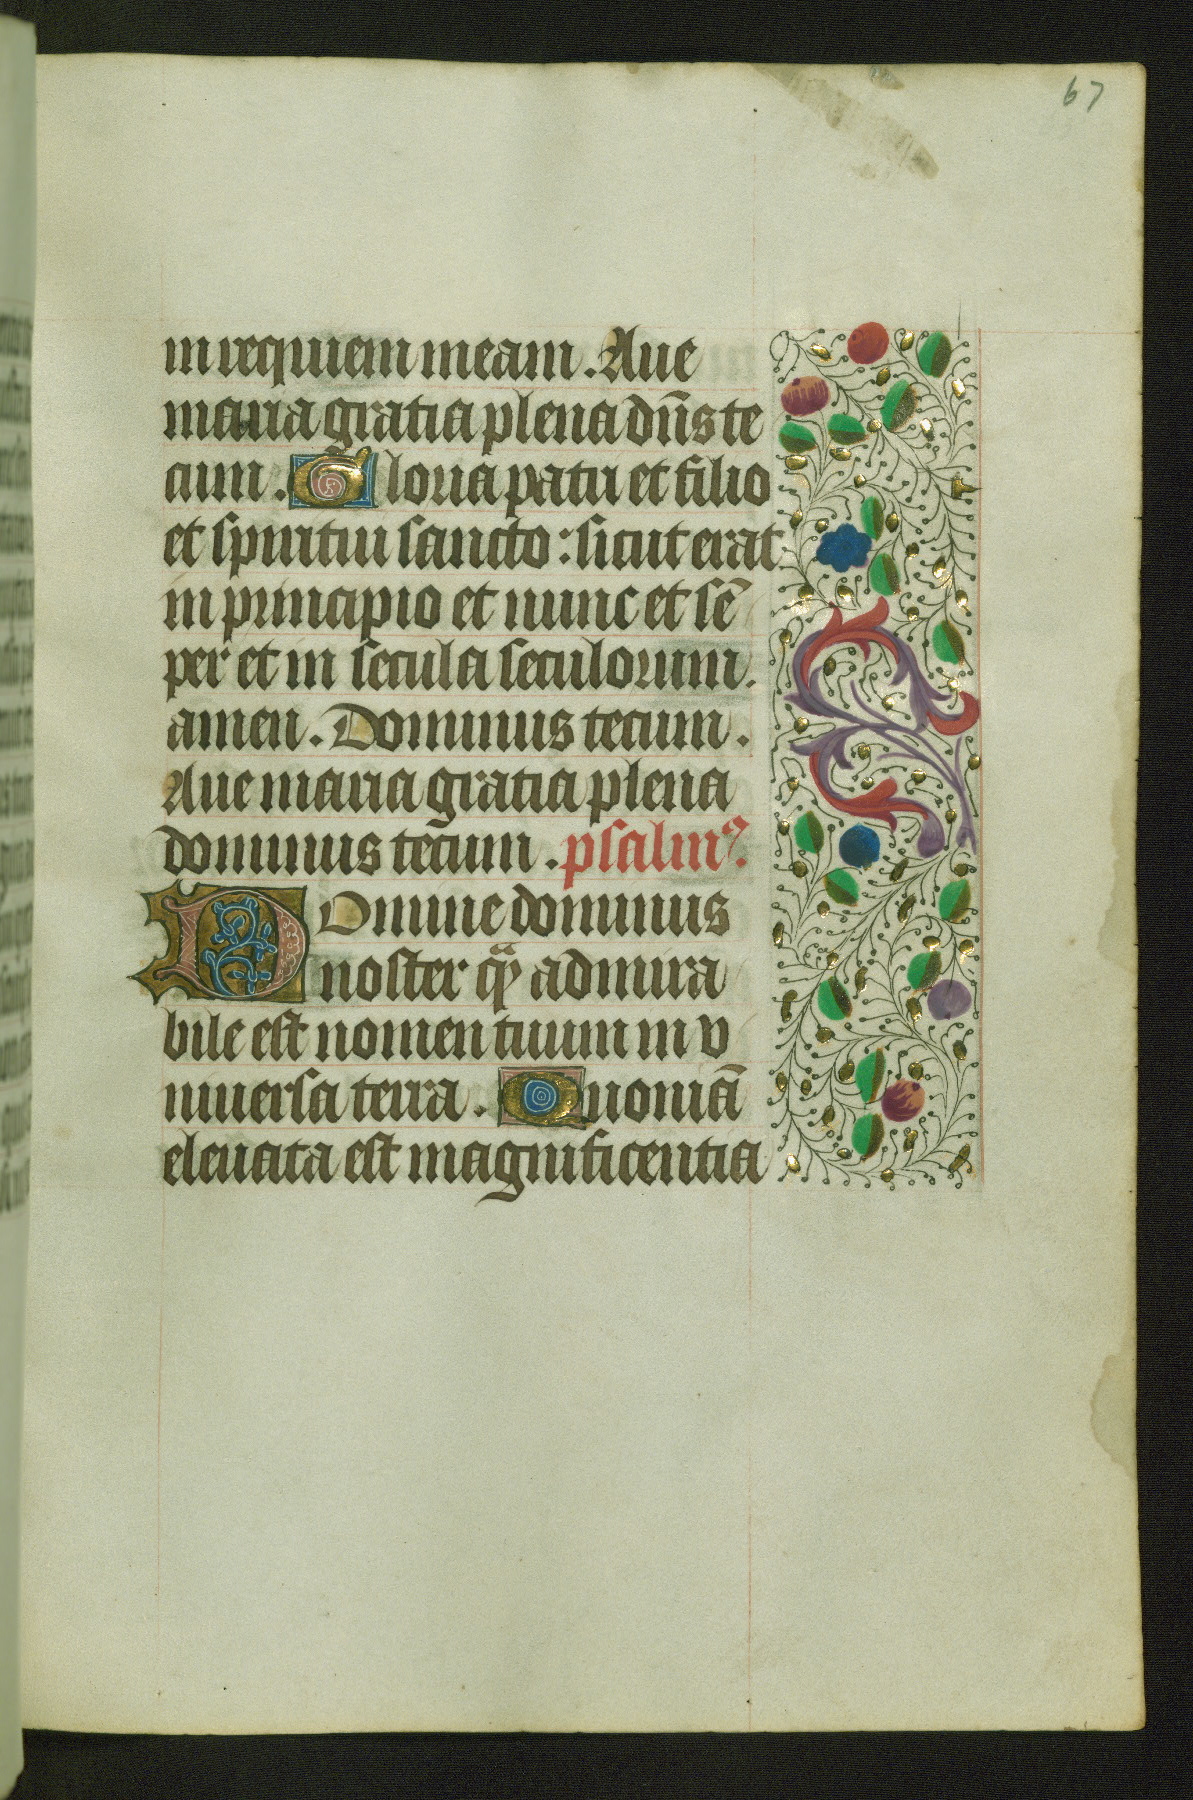 67
in requiem meam. Aue
maria gratia plena dn̄s te
cum. Gloria patri et filio
et spiritui sancto: sicut erat
in principio et nunc et sē
per et in secula seculorum.
amen. Dominus tecum.
Aue maria gratia plena
dominus tecum. psalmꝰ.
Domine dominus
noster qͣ admira
bile est nomen tuum in v
niuersa terra. Quoniā
eleuata est magnificentia